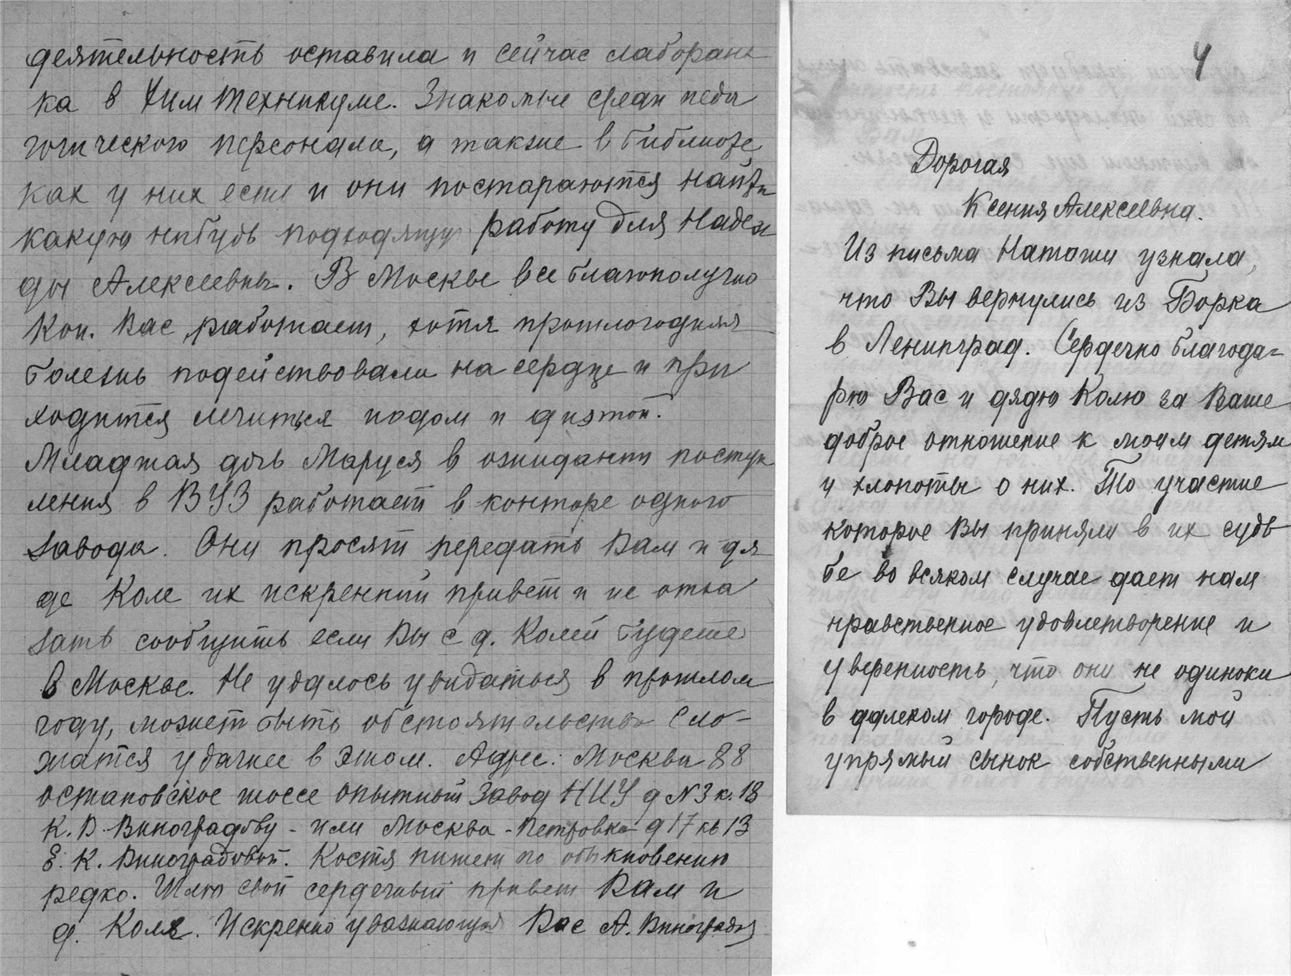 деятельность оставила и сейчас лаборан
ка в Хим техникуме. Знакомые среди педа
гогического персонала, а также в библиоте
ках у них есть и они постараются найти
какую нибудь подходящую работу для Надеж
ды Алексеевны. В Москве все благополучно
Кон. Вас. работает, хотя прошлогодняя
болезнь подействовала на сердце и при
ходится лечиться иодом и диэтой.
Младшая дочь Маруся в ожидании поступ
ления в ВУЗ работает в конторе одного
завода. Они просят передать Вам и дя
де Коле их искренний привет и не отка
зать сообщить если Вы с д. Колей будете
в Москве. Не удалось увидаться в прошлом
году, может быть обстоятельства сло-
жатся удачнее в этом. Адрес: Москва 88
остаповское шоссе опытный завод НИУ д N3 к. 18
К. В. Виноградову - или Москва - Петровка д 17 кв 13
Е. К. Виноградовой. Костя пишет по обыкновению
редко. Шлю свой сердечный привет Вам и
д. Коле. Искренно уважающая Вас А. Виноградова
4
Дорогая
Ксения Алексеевна.
Из письма Наташи узнала,
что Вы вернулись из Борка
в Ленинград. Сердечно благода=
рю Вас и дядю Колю за Ваше
доброе отношение к моим детям
и хлопоты о них. То участие
которое Вы приняли в их судь
бе во всяком случае дает нам
нравственное удовлетворение и
уверенность, что они не одиноки
в далеком городе. Пусть мой
упрямый сынок собственными